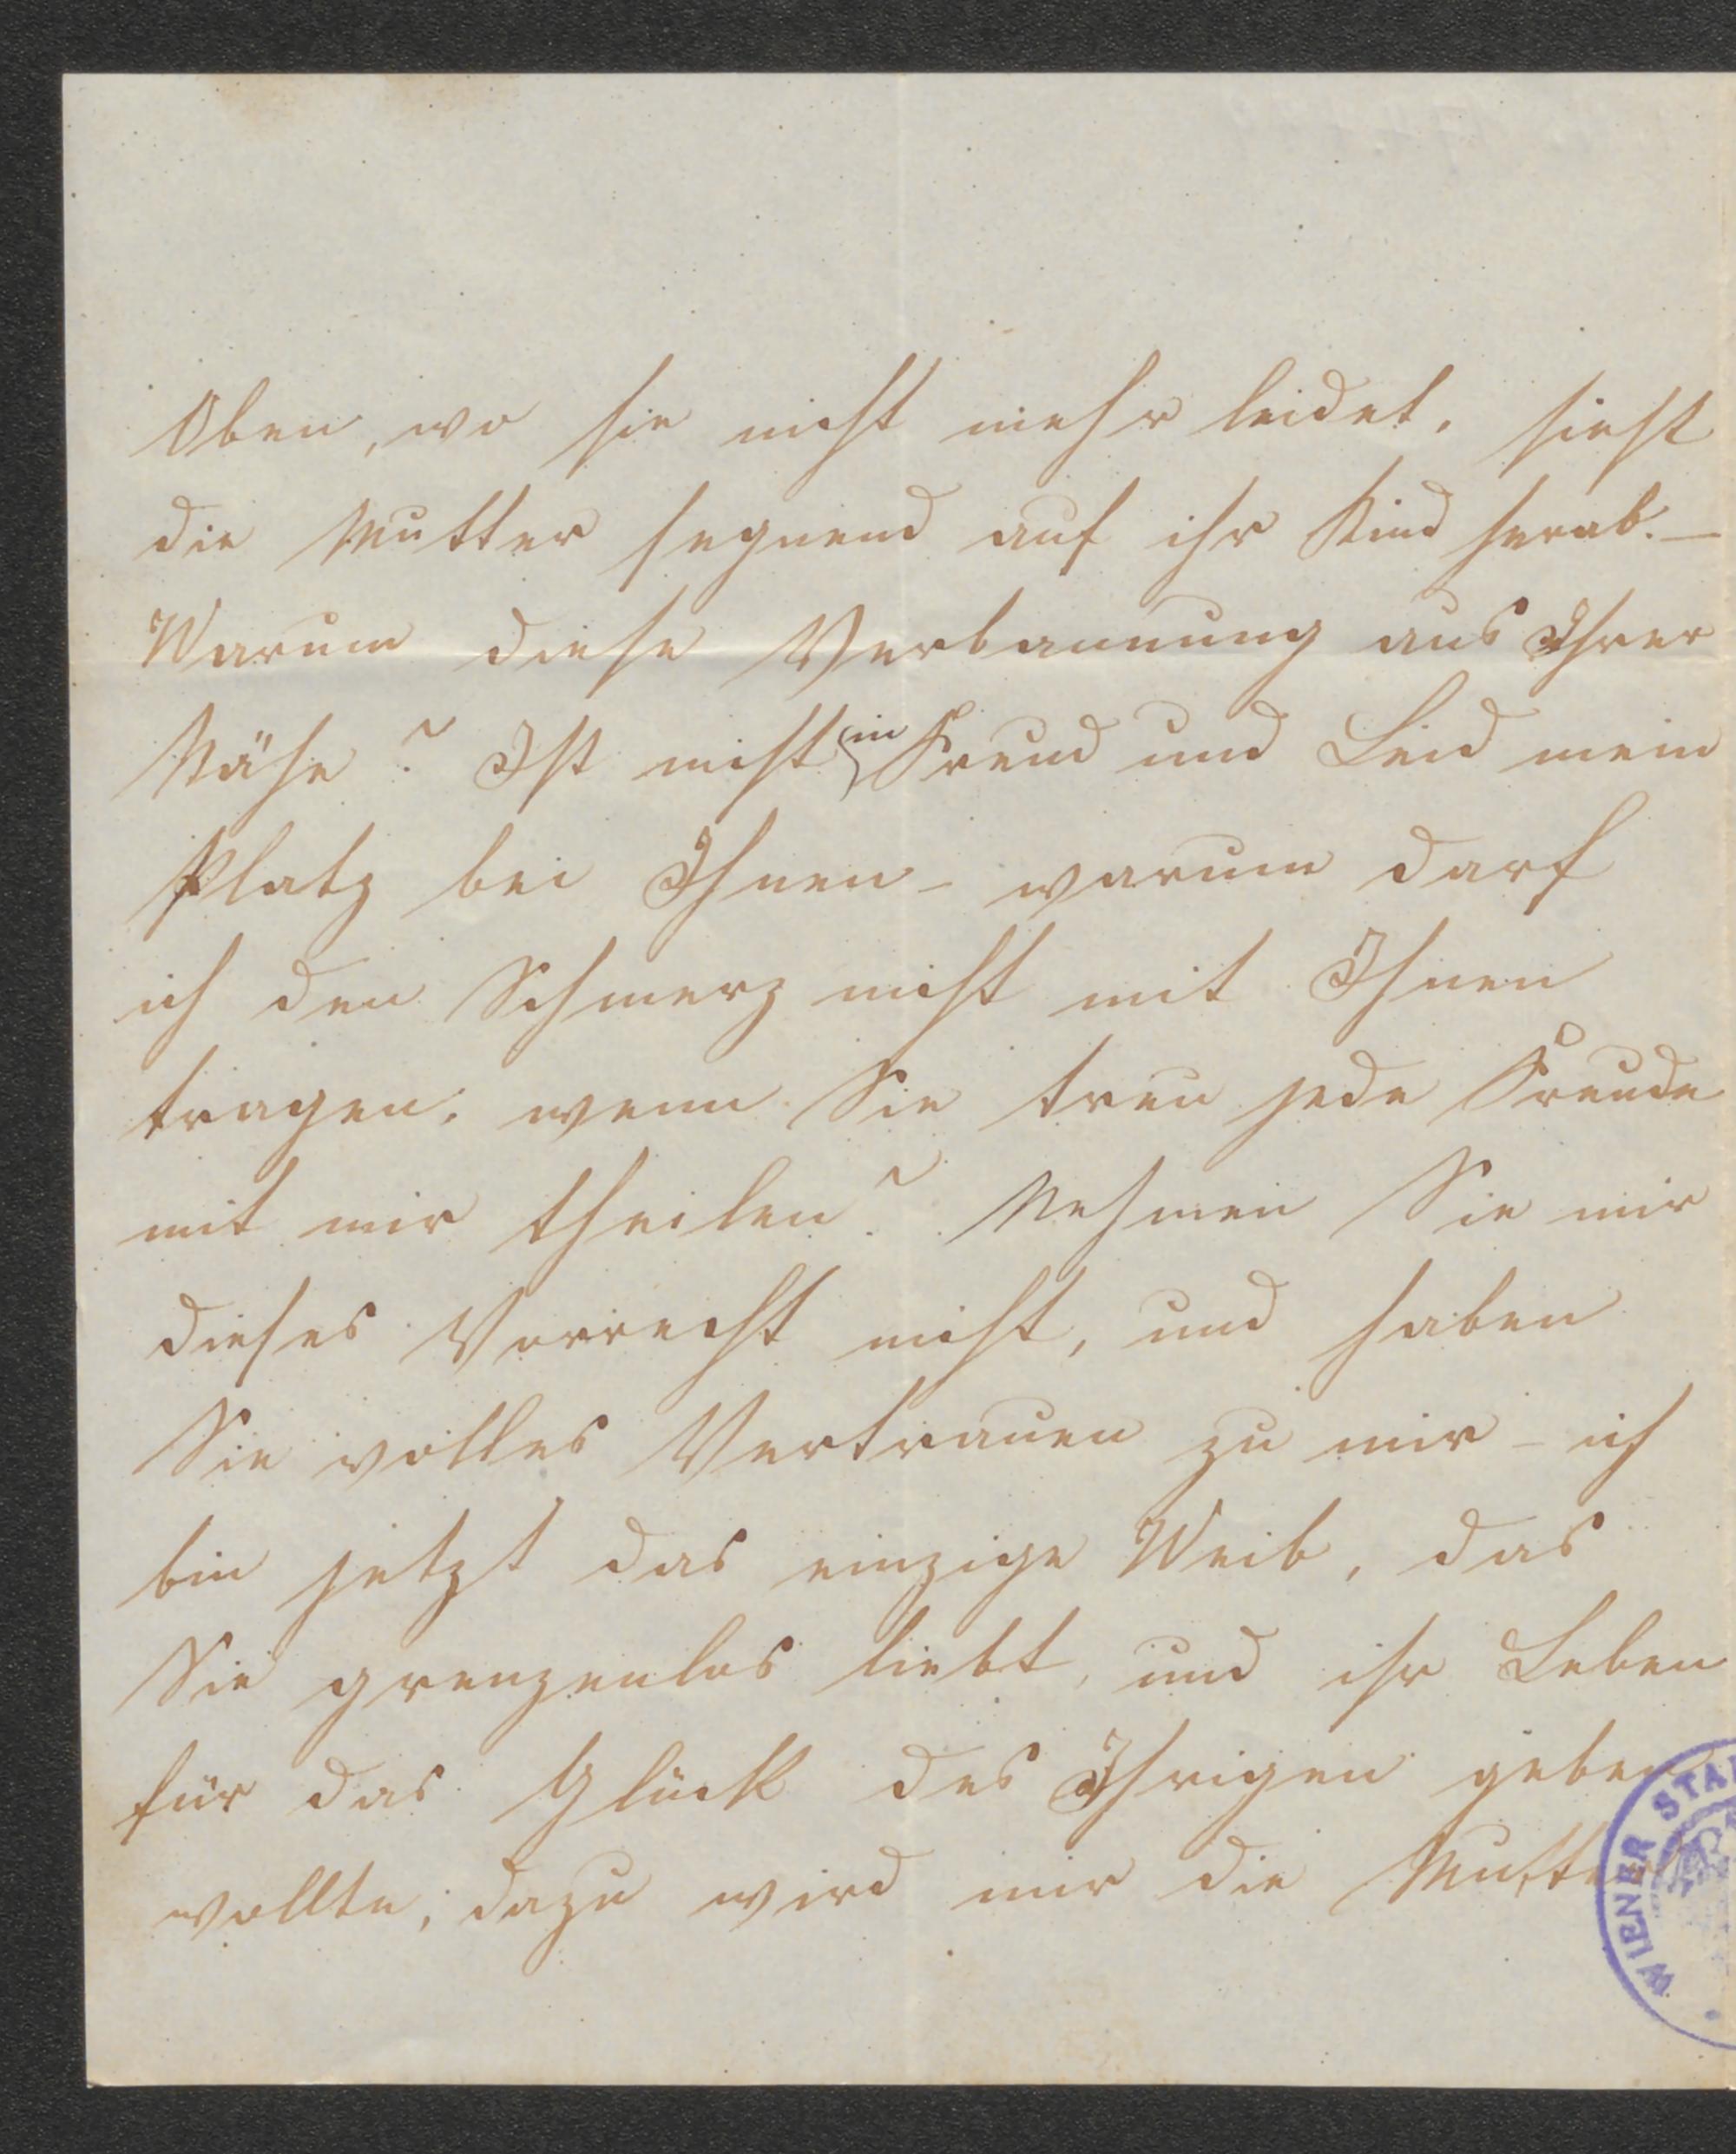 Oben, wo sie nicht mehr leidet, sieht
die Mutter segnend auf ihr Kind herab. —
Warum diese Verbannung aus Ihrer
Nähe? Ist nicht in Freud und Leid mein
Platz bei Ihnen – warum darf
ich den Schmerz nicht mit Ihnen
tragen, wenn Sie treu jede Freude
mit mir theilen? Nehmen Sie mir
dieses Vorrecht nicht, und haben
Sie volles Vertrauen zu mir – ich
bin jetzt das einzige Weib, das
Sie grenzenlos liebt, und ihr Leben
für das Glück des Ihrigen geben
wollte; dazu wird mir die Mutter
WIENER STA